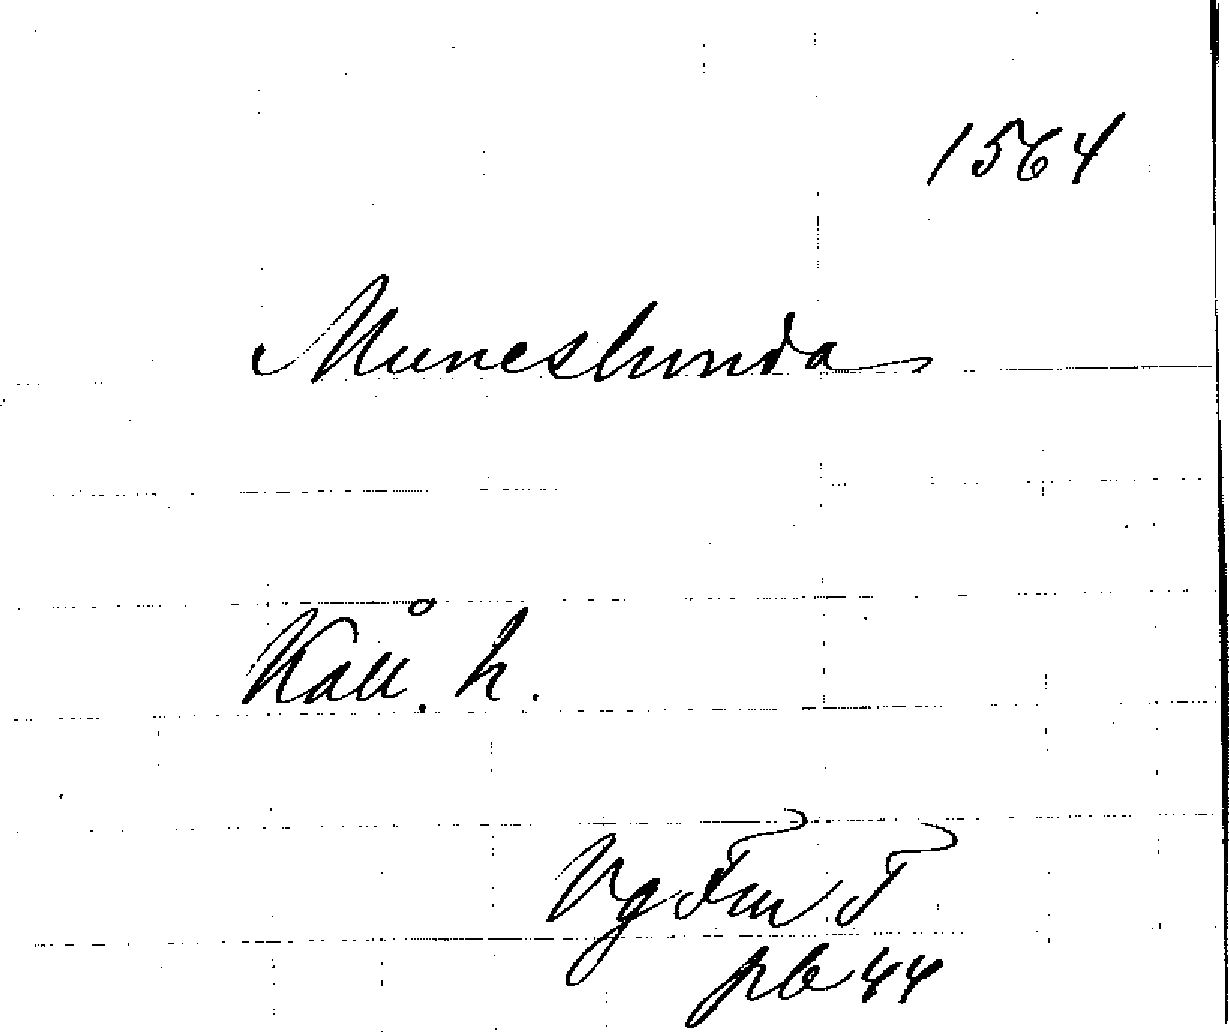 1564
Muneslunda
Kåll. h.
Vg Fm. T